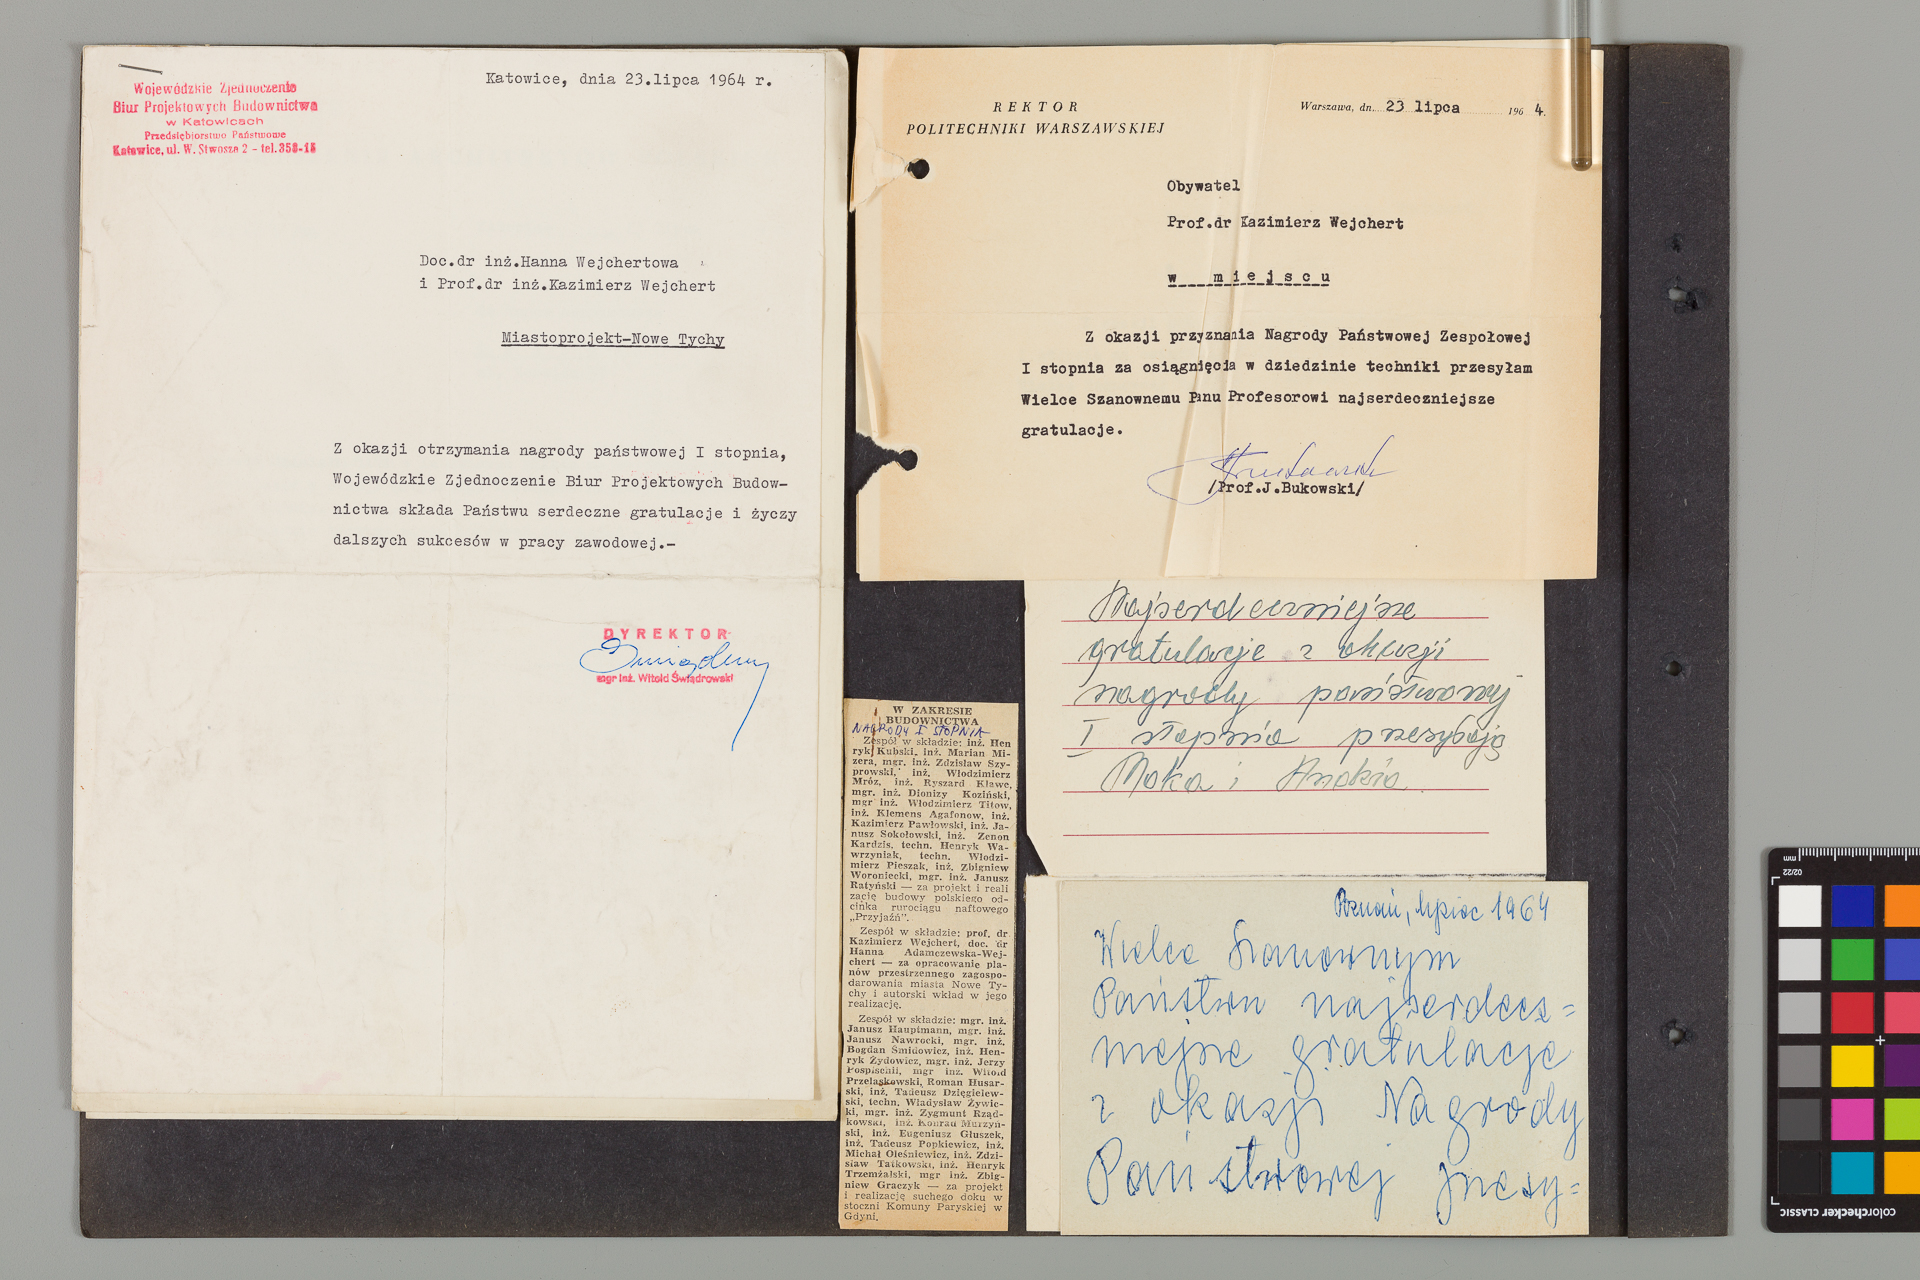 Wojewódzkie Zjednoczenie
Biur Projektowych Budownictwa
w Katowicach
Przedsiębiorstwo Państwowe
Katowice, ul. W. Stwosza 2 - tel. 358-15
Katowice, dnia 23.lipca 1964 r.
Doc.dr inż.Hanna Wejchertowa
i Prof.dr inż.Kazimierz Wejchert
Miastoprojekt-Nowe Tychy
Z okazji otrzymania nagrody państwowej I stopnia,
Wojewódzkie Zjednoczenie Biur Projektowych Budow-
nictwa składa Państwu serdeczne gratulacje i życzy
dalszych sukcesów w pracy zawodowej.-
DYREKTOR
mgr inż. Witold Świądrowski
REKTOR
POLITECHNIKI WARSZAWSKIEJ
Warszawa, dn. 23 lipca 1964.
Obywatel
Prof.dr Kazimierz Wejchert
w miejscu
Z okazji przyznania Nagrody Państwowej Zespołowej
I stopnia za osiągnięcia w dziedzinie techniki przesyłam
Wielce Szanownemu Panu Profesorowi najserdeczniejsze
gratulacje.
/Prof.J.Bukowski/
W ZAKRESIE
BUDOWNICTWA
NAGRODY I STOPNIA
Zespół w składzie: inż. Hen
ryk Kubski, inż. Marian Mi-
zera, mgr. inż. Zdzisław Szy-
prowski, inż. Włodzimierz
Mróz, inż. Ryszard Kławe,
mgr. inż. Dionizy Koziński,
mgr inż. Włodzimierz Titow,
inż. Klemens Agafonow, inż.
Kazimierz Pawłowski, inż. Ja-
nusz Sokołowski, inż. Zenon
Kardzis, techn. Henryk Wa-
wrzyniak, techn. Włodzi-
mierz Pieszak, inż. Zbigniew
Woroniecki, mgr. inż. Janusz
Ratyński — za projekt i reali
zację budowy polskiego od-
cinka rurociągu naftowego
„Przyjaźń".
Zespół w składzie: prof. dr
Kazimierz Wejchert, doc. dr
Hanna Adamczewska-Wej-
chert — za opracowanie pla-
nów przestrzennego zagospo-
darowania miasta Nowe Ty-
chy i autorski wkład w jego
realizację.
Zespół w składzie: mgr. inż.
Janusz Hauptmann, mgr. inż.
Janusz Nawrocki, mgr. inż.
Bogdan Śmidowicz, inż. Hen-
ryk Żydowicz, mgr. inż. Jerzy
Pospischil, mgr inż. Witold
Przelaskowski, Roman Husar-
ski, inż. Tadeusz Dzięgielew-
ski, techn. Władysław Żywic-
ki, mgr. inż. Zygmunt Rząd-
kowski, inż. Konrad Murzyń-
ski, inż. Eugeniusz Głuszek,
inż. Tadeusz Popkiewicz, inż.
Michał Oleśniewicz, inż. Zdzi-
sław Tatkowski, inż. Henryk
Trzemżalski, mgr inż. Zbig-
niew Graczyk — za projekt
i realizację suchego doku w
stoczni Komuny Paryskiej w
Gdyni.
Najserdeczniejsze
gratulacje z okazji
nagrody państwowej
I stopnia przesyłają
i
Poznań, lipiec 1964
Wielce Szanownym
Państwu najserdecz=
niejsze gratulacje
z okazji Nagrody
Państwowej przesy=
mm
02/22
colorchecker CLASSIC